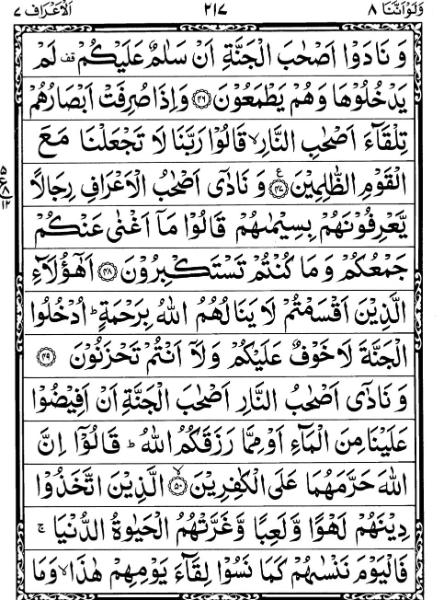 وَلَوْ اَنَّنَا ٨ ٢١٧ اَلْاَعْرَاف ٧
وَ نَادَوْا اَصْحٰبَ الْجَنَّةِ اَنْ سَلٰمٌ عَلَيْكُمْ قف لَمْ
يَدْخُلُوْهَا وَهُمْ يَطْمَعُوْنَ ﴿٤٦﴾ وَاِذَا صُرِفَتْ اَبْصَارُهُمْ
تِلْقَآءَ اَصْحٰبِ النَّارِ ۙ قَالُوْا رَبَّنَا لَا تَجْعَلْنَا مَعَ
الْقَوْمِ الظّٰلِمِيْنَ ﴿٤٧﴾ ع وَ نَادٰٓى اَصْحٰبُ الْاَعْرَافِ رِجَالًا
يَّعْرِفُوْنَهُمْ بِسِيْمٰىهُمْ قَالُوْا مَآ اَغْنٰى عَنْكُمْ
جَمْعُكُمْ وَ مَا كُنْتُمْ تَسْتَكْبِرُوْنَ ﴿٤٨﴾ اَهٰٓؤُلَآءِ
الَّذِيْنَ اَقْسَمْتُمْ لَا يَنَالُهُمُ اللّٰهُ بِرَحْمَةٍ ؕ اُدْخُلُوا
الْجَنَّةَ لَا خَوْفٌ عَلَيْكُمْ وَ لَآ اَنْتُمْ تَحْزَنُوْنَ ﴿٤٩﴾
وَ نَادٰٓى اَصْحٰبُ النَّارِ اَصْحٰبَ الْجَنَّةِ اَنْ اَفِيْضُوْا
عَلَيْنَا مِنَ الْمَآءِ اَوْ مِمَّا رَزَقَكُمُ اللّٰهُ ؕ قَالُوْٓا اِنَّ
اللّٰهَ حَرَّمَهُمَا عَلَى الْكٰفِرِيْنَ ﴿٥٠﴾ ۙ الَّذِيْنَ اتَّخَذُوْا
دِيْنَهُمْ لَهْوًا وَّ لَعِبًا وَّ غَرَّتْهُمُ الْحَيٰوةُ الدُّنْيَا ۚ
فَالْيَوْمَ نَنْسٰىهُمْ كَمَا نَسُوْا لِقَآءَ يَوْمِهِمْ هٰذَا ۙ وَ مَا